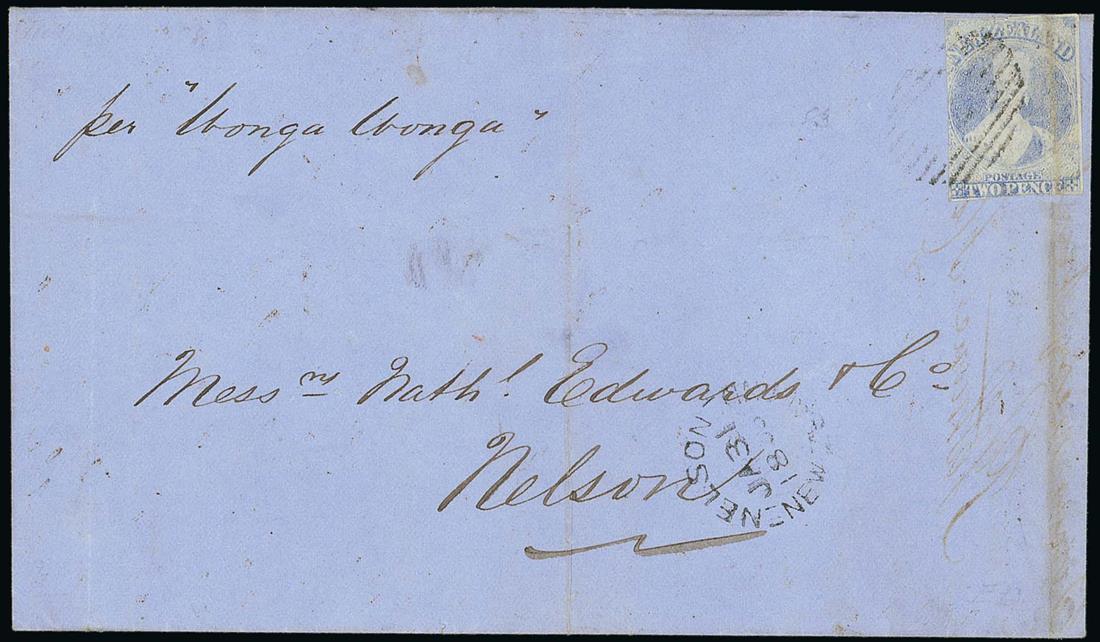 NEW ZEALAND
POSTAGE
TWO PENCE
per "Wonga Wonga"
Mess^rs Nath^l Edwards & C^o
Nelson
NELSON
JA 31
NEW